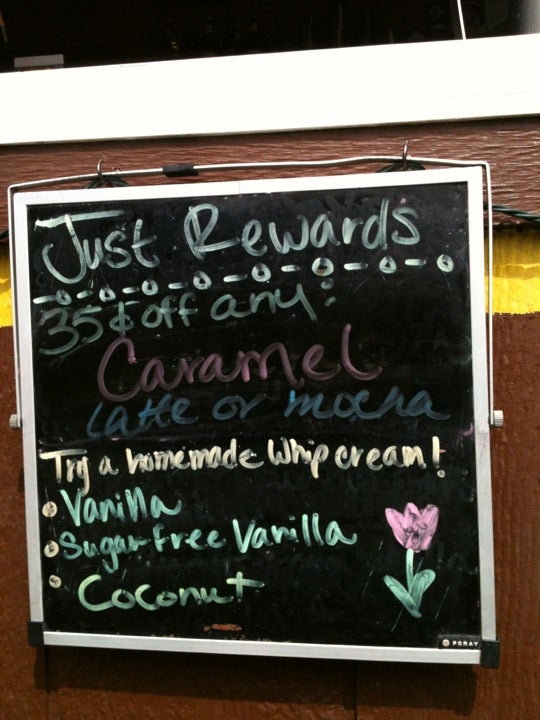 Just Rewards
35¢ off any:
Caramel
latte or mocha
Try a homemade Whip cream!
Vanilla
Sugar Free Vanilla
Coconut
FORAY